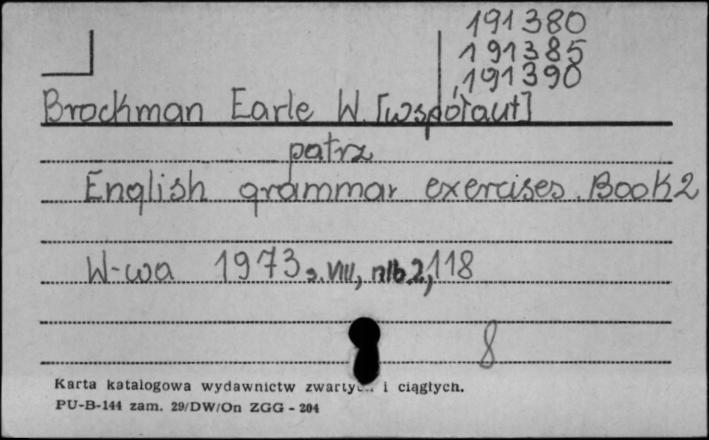 191380
191385
191390
Brockman Earle W. [współaut]
patrz
English grammar exercises. Book 2
W-wa 1973 s. VIII, nlb. 2, 118
8
Karta katalogowa wydawnictw zwartych i ciągłych.
PU-B-144 zam. 29/DW/On ZGG - 204